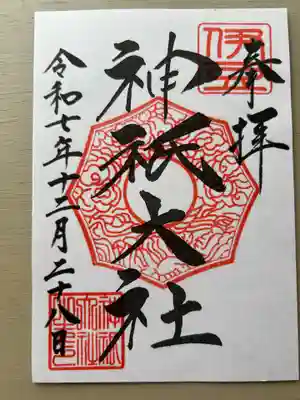 奉拝
神祇大社
令和七年十二月二十八日